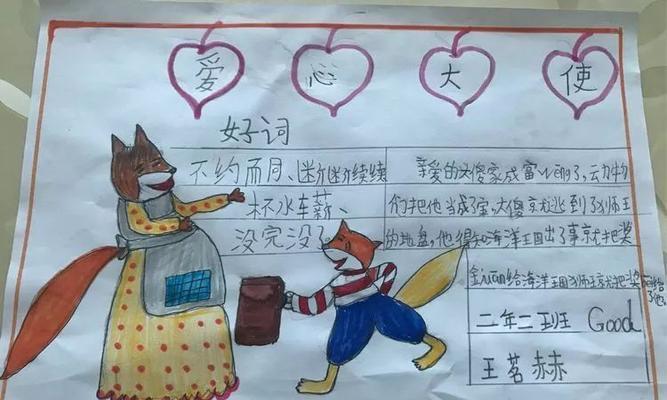 爱心大使
好词
不约而同、断断续续
杯水车薪、
没完没了
亲爱的大傻家成富weng了，动物
们把他当成了宝，大傻就逃到了狮王
的地盘，他得知海洋王国出了事就把奖
金给海洋王国狮王就把奖
二年二班 Good
王茗赫